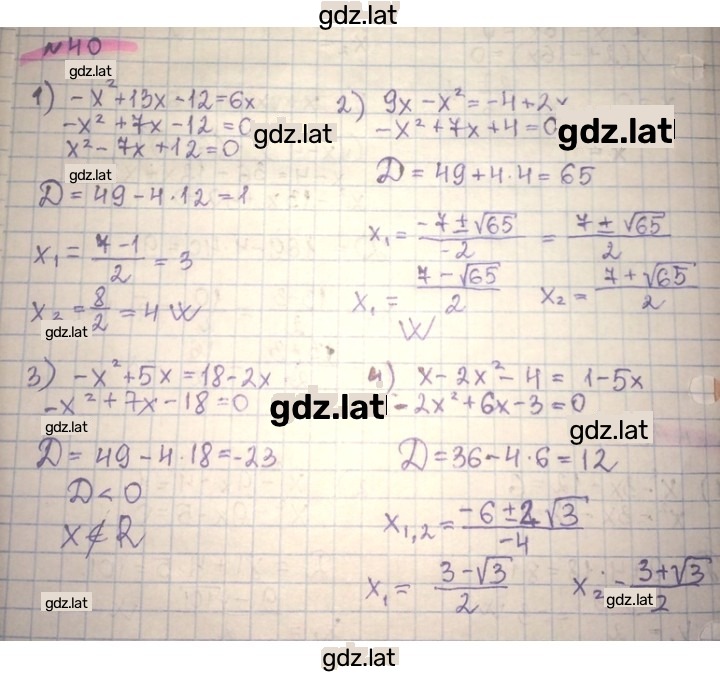 gdz.lat
№40
gdz.lat
1) -x²+13x-12=6x
-x²+7x-12=0
gdz.lat
x²-7x+12=0
D=49-4·12=1
x₁=(7-1)/2=3
x₂=8/2=4 W
gdz.lat
2) 9x-x²=-4+2x
-x²+7x+4=0
gdz.lat
D=49+4·4=65
x₁=(-7±√65)/-2=(7±√65)/2
x₁=(7-√65)/2 x₂=(7+√65)/2
W
3) -x²+5x=18-2x
-x²+7x-18=0
gdz.lat
D=49-4·18=-23
D<0
x∉R
gdz.lat
4) x-2x²-4=1-5x
-2x²+6x-3=0
gdz.lat
D=36-4·6=12
x₁,₂=(-6±2√3)/-4
x₁=(3-√3)/2 x₂=(3+√3)/2
gdz.lat
gdz.lat